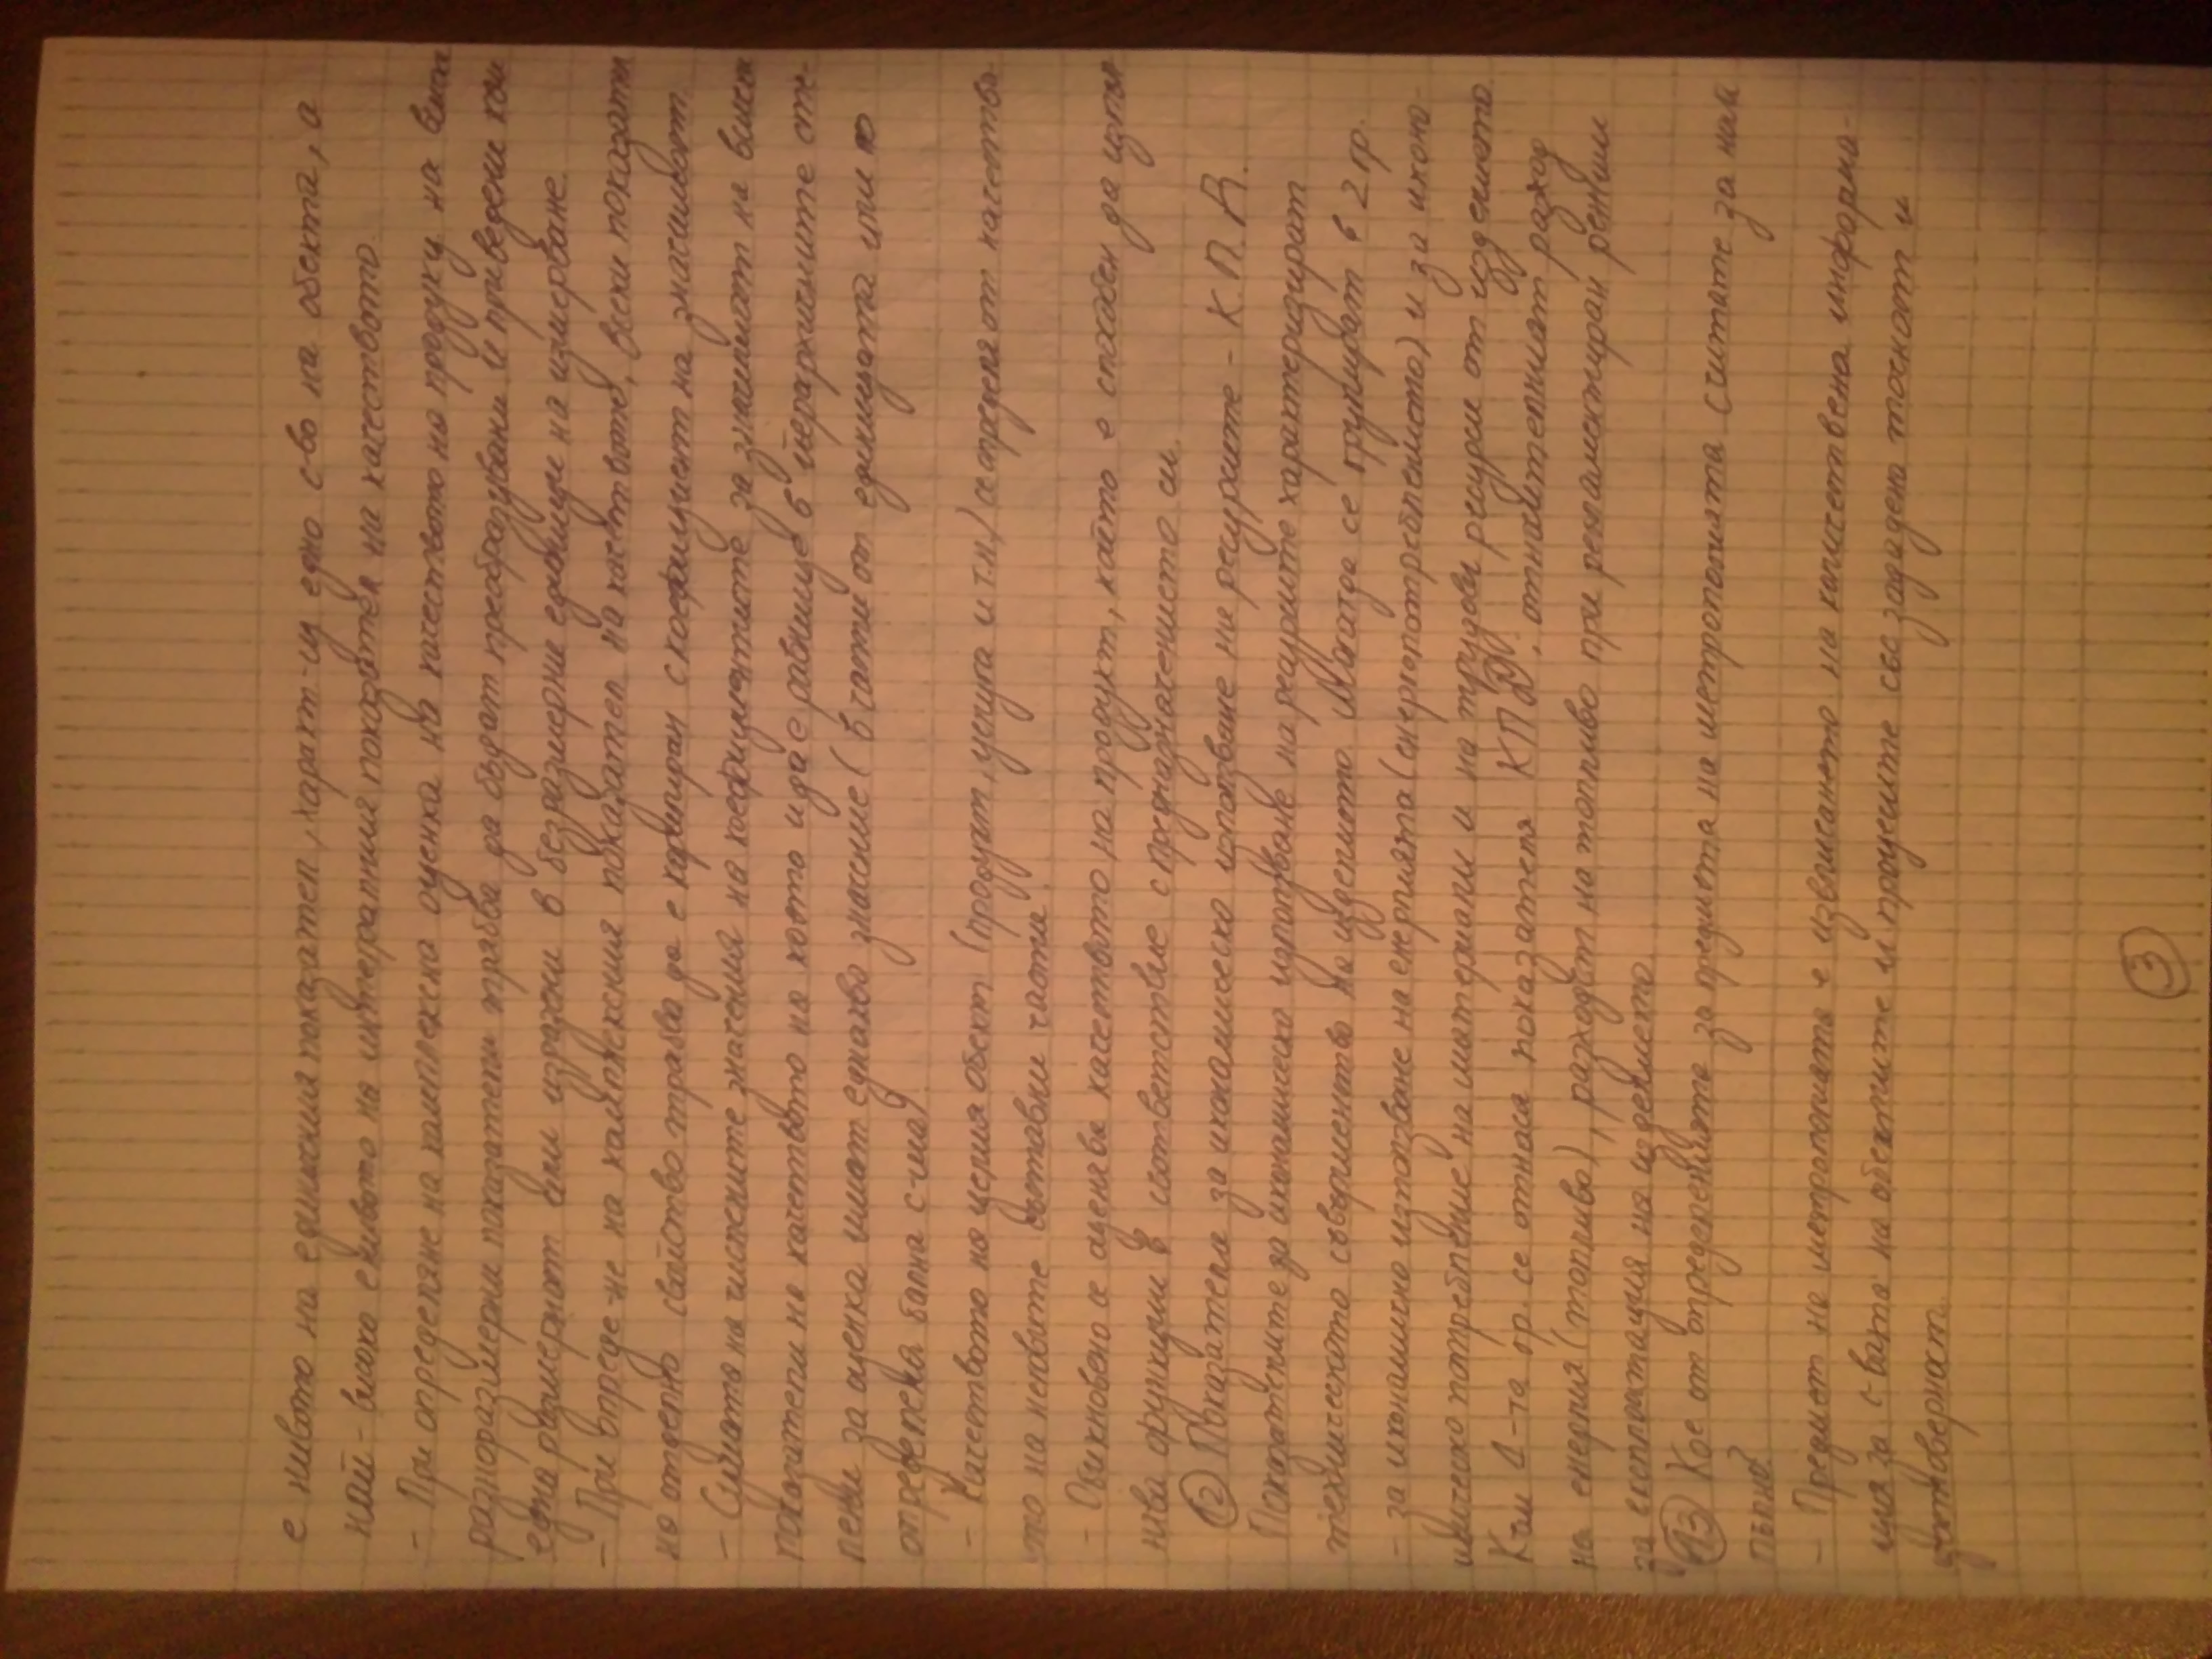 е нивото на единичния показател, характ-щ едно с-во на обекта, а
най-високо е нивото на интегралния показател на качеството
- При определяне на комплексна оценка на качеството на продукц на
разноразмерни показатели трябва да бъдат преобразувани и приведени към
една размерност или изразени в безразмерни единици на измерване
- При опреде-не на комплексния показател на качеството, всеки показател
на отделно свойство трябва да е корелиран с коефициент на значимост
- Сумата на числените значения на коефициентите за значимост на всички
показатели на качеството на което и да е равнище в йерархичните сте-
пени за оценка имат еднакво значение (в части от единицата или по
определена бална с-ма)
- Качеството на целия обект (продукт, услуга и т.н.) се определя от качество-
то на неговите съставни части.
- Обикновено се оценява качеството на продукт, който е способен да изпъл
нява функции в съответствие с предназначението си.
(12) Показатели за икономическо използване на ресурсите - К.П.Д.
Показателите за икономическо използване на ресурсите характеризират
техническото съвършенство на изделието. Могат да се групират в 2 гр.
- за икономично използване на енергията (енергопотреблението) и за иконо-
мическо потребление на материали и на трудови ресурси от изделието
Към 1-та гр. се отнася показателя КПД, относителният разход
на енергия (топливо), разходът на топливо при регламентиран режим
за експлоатация на изделието
(13) Кое от определенията за предмета на метрологията считате за най
пълно?
- Предмет на метрологията е извличането на количествена информа-
ция за с-вата на обектите и процесите със зададена точност и
достоверност.
(3)